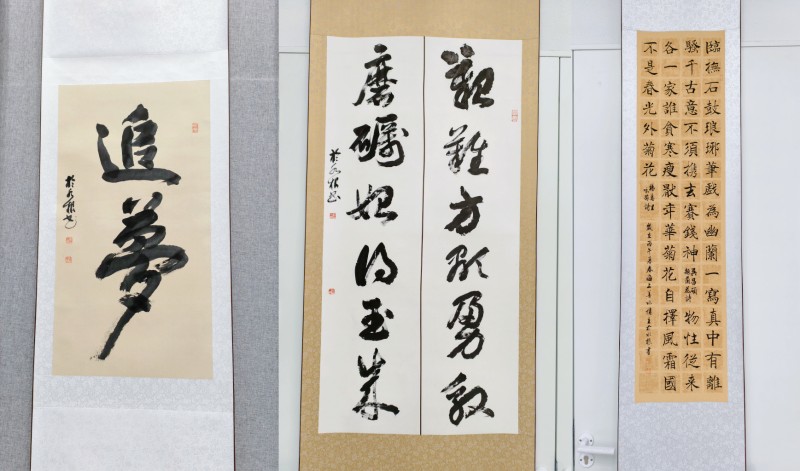 追夢
艱難方顯勇毅
磨礪始得玉成
臨撫石鼓琅琊筆戲為幽蘭一寫真中有離
騷千古意不須携去賽錢神吳昌碩題蘭花詩物性從來
各一家誰貪寒瘦厭年華菊花自擇風霜國
不是春光外菊花